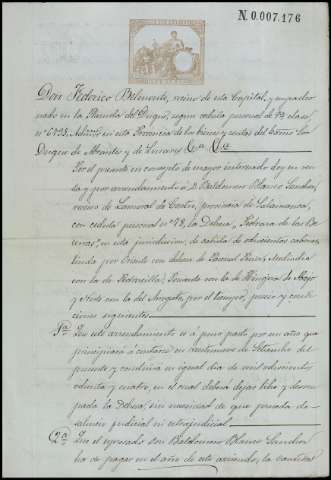 N.0.007.176
Don Federico Belmonte, vecino de esta Capital, y empadro
nado en la Plazuela del Duque, segun cedula personal de 9ª clase,
nº 6.735, Admor en esta Provincia de los bienes y rentas del Exmo Sor
Duque de Abrantes y de Linares
Por el presente, en concepto de mayor interesado doy en ren
ta y por arrendamiento á D. Baldomero Blanco Sanchez,
vecino de de Castro, provincia de Salamanca,
con cedula personal nº 78, la Dehesa, Pedrera de las
en esta jurisdiccion, de cabida de ochocientas
linda por Oriente con dehesa de
con la de Poniente con la de Higuera de
y Norte con la del por el tiempo, precio y condi
ciones siguientes
1ª Que este arrendamiento es á pura pasto por un año que
principiará á contarse en veintinueve de Setiembre del
presente y concluirá en igual dia de mil ochocientos
ochenta y cuatro, en el cual deberá dejar libre y desocu
pada la Dehesa, sin necesidad de que preceda de
sahucio judicial ni estrajudicial
2ª Que el espresado Don Baldomero Blanco Sanchez
ha de pagar en el año de este arriendo, la cantidad